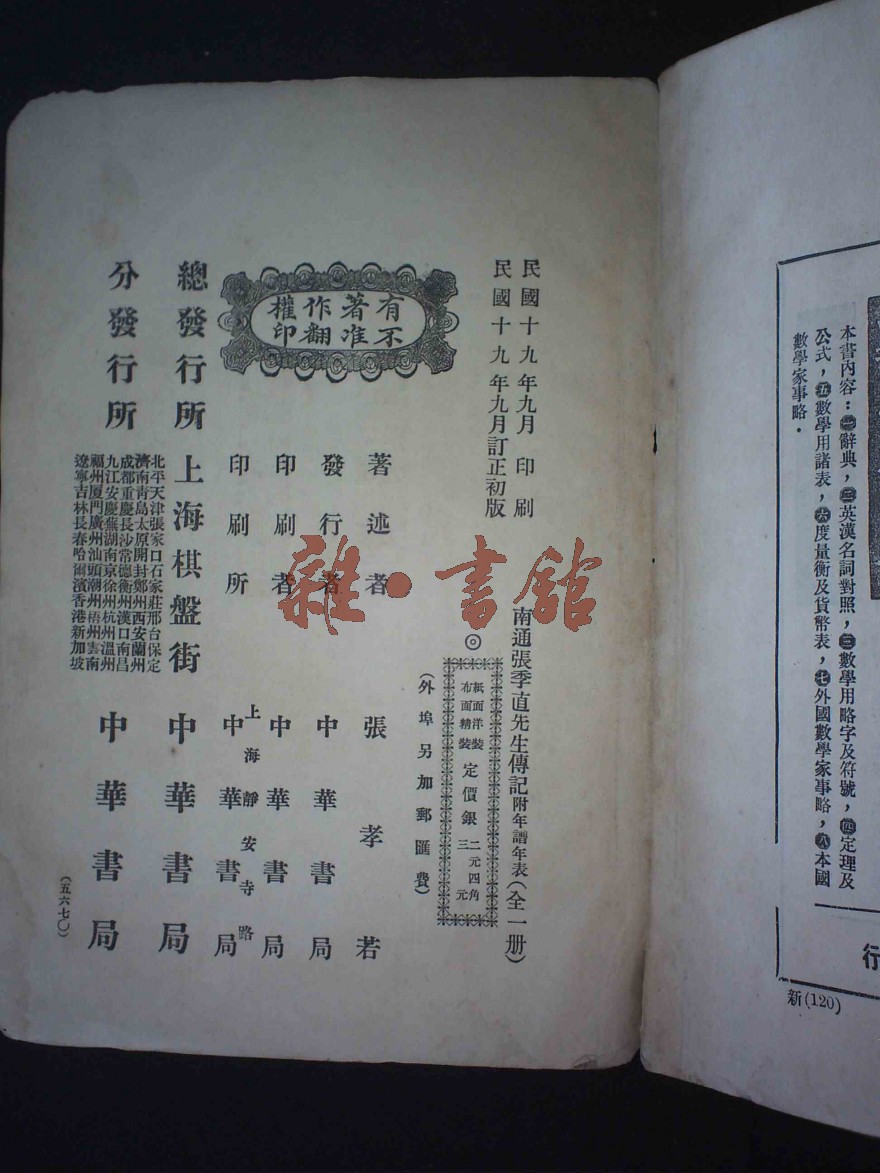 本書內容：㊀辭典，㊁英漢名詞對照，㊂數學用略字及符號，㊃定理及
公式，㊄數學用諸表，㊅度量衡及貨幣表，㊆外國數學家事略，㊇本國
數學家事略．
行
新(120)
民國十九年九月印刷
民國十九年九月訂正初版
南通張季直先生傳記附年譜年表(全一册)
◎
紙面洋裝
布面精裝
定價銀
二元四角
三元
(外埠另加郵匯費)
著述者 張孝若
發行者 中華書局
印刷者 中華書局
上海靜安寺路
印刷所 中華書局
有著作權
不准翻印
總發行所 上海棋盤街 中華書局
分發行所
北平天津張家口石家莊邢台保定
濟南靑島太原開封鄭州西安蘭州
成都重慶長沙常德衡州漢口南昌
九江安慶蕪湖南京徐州杭州溫州
福州厦門廣州汕頭潮州梧州雲南
遼寧吉林長春哈爾濱香港新加坡
中華書局
(五六七〇)
雜·書館